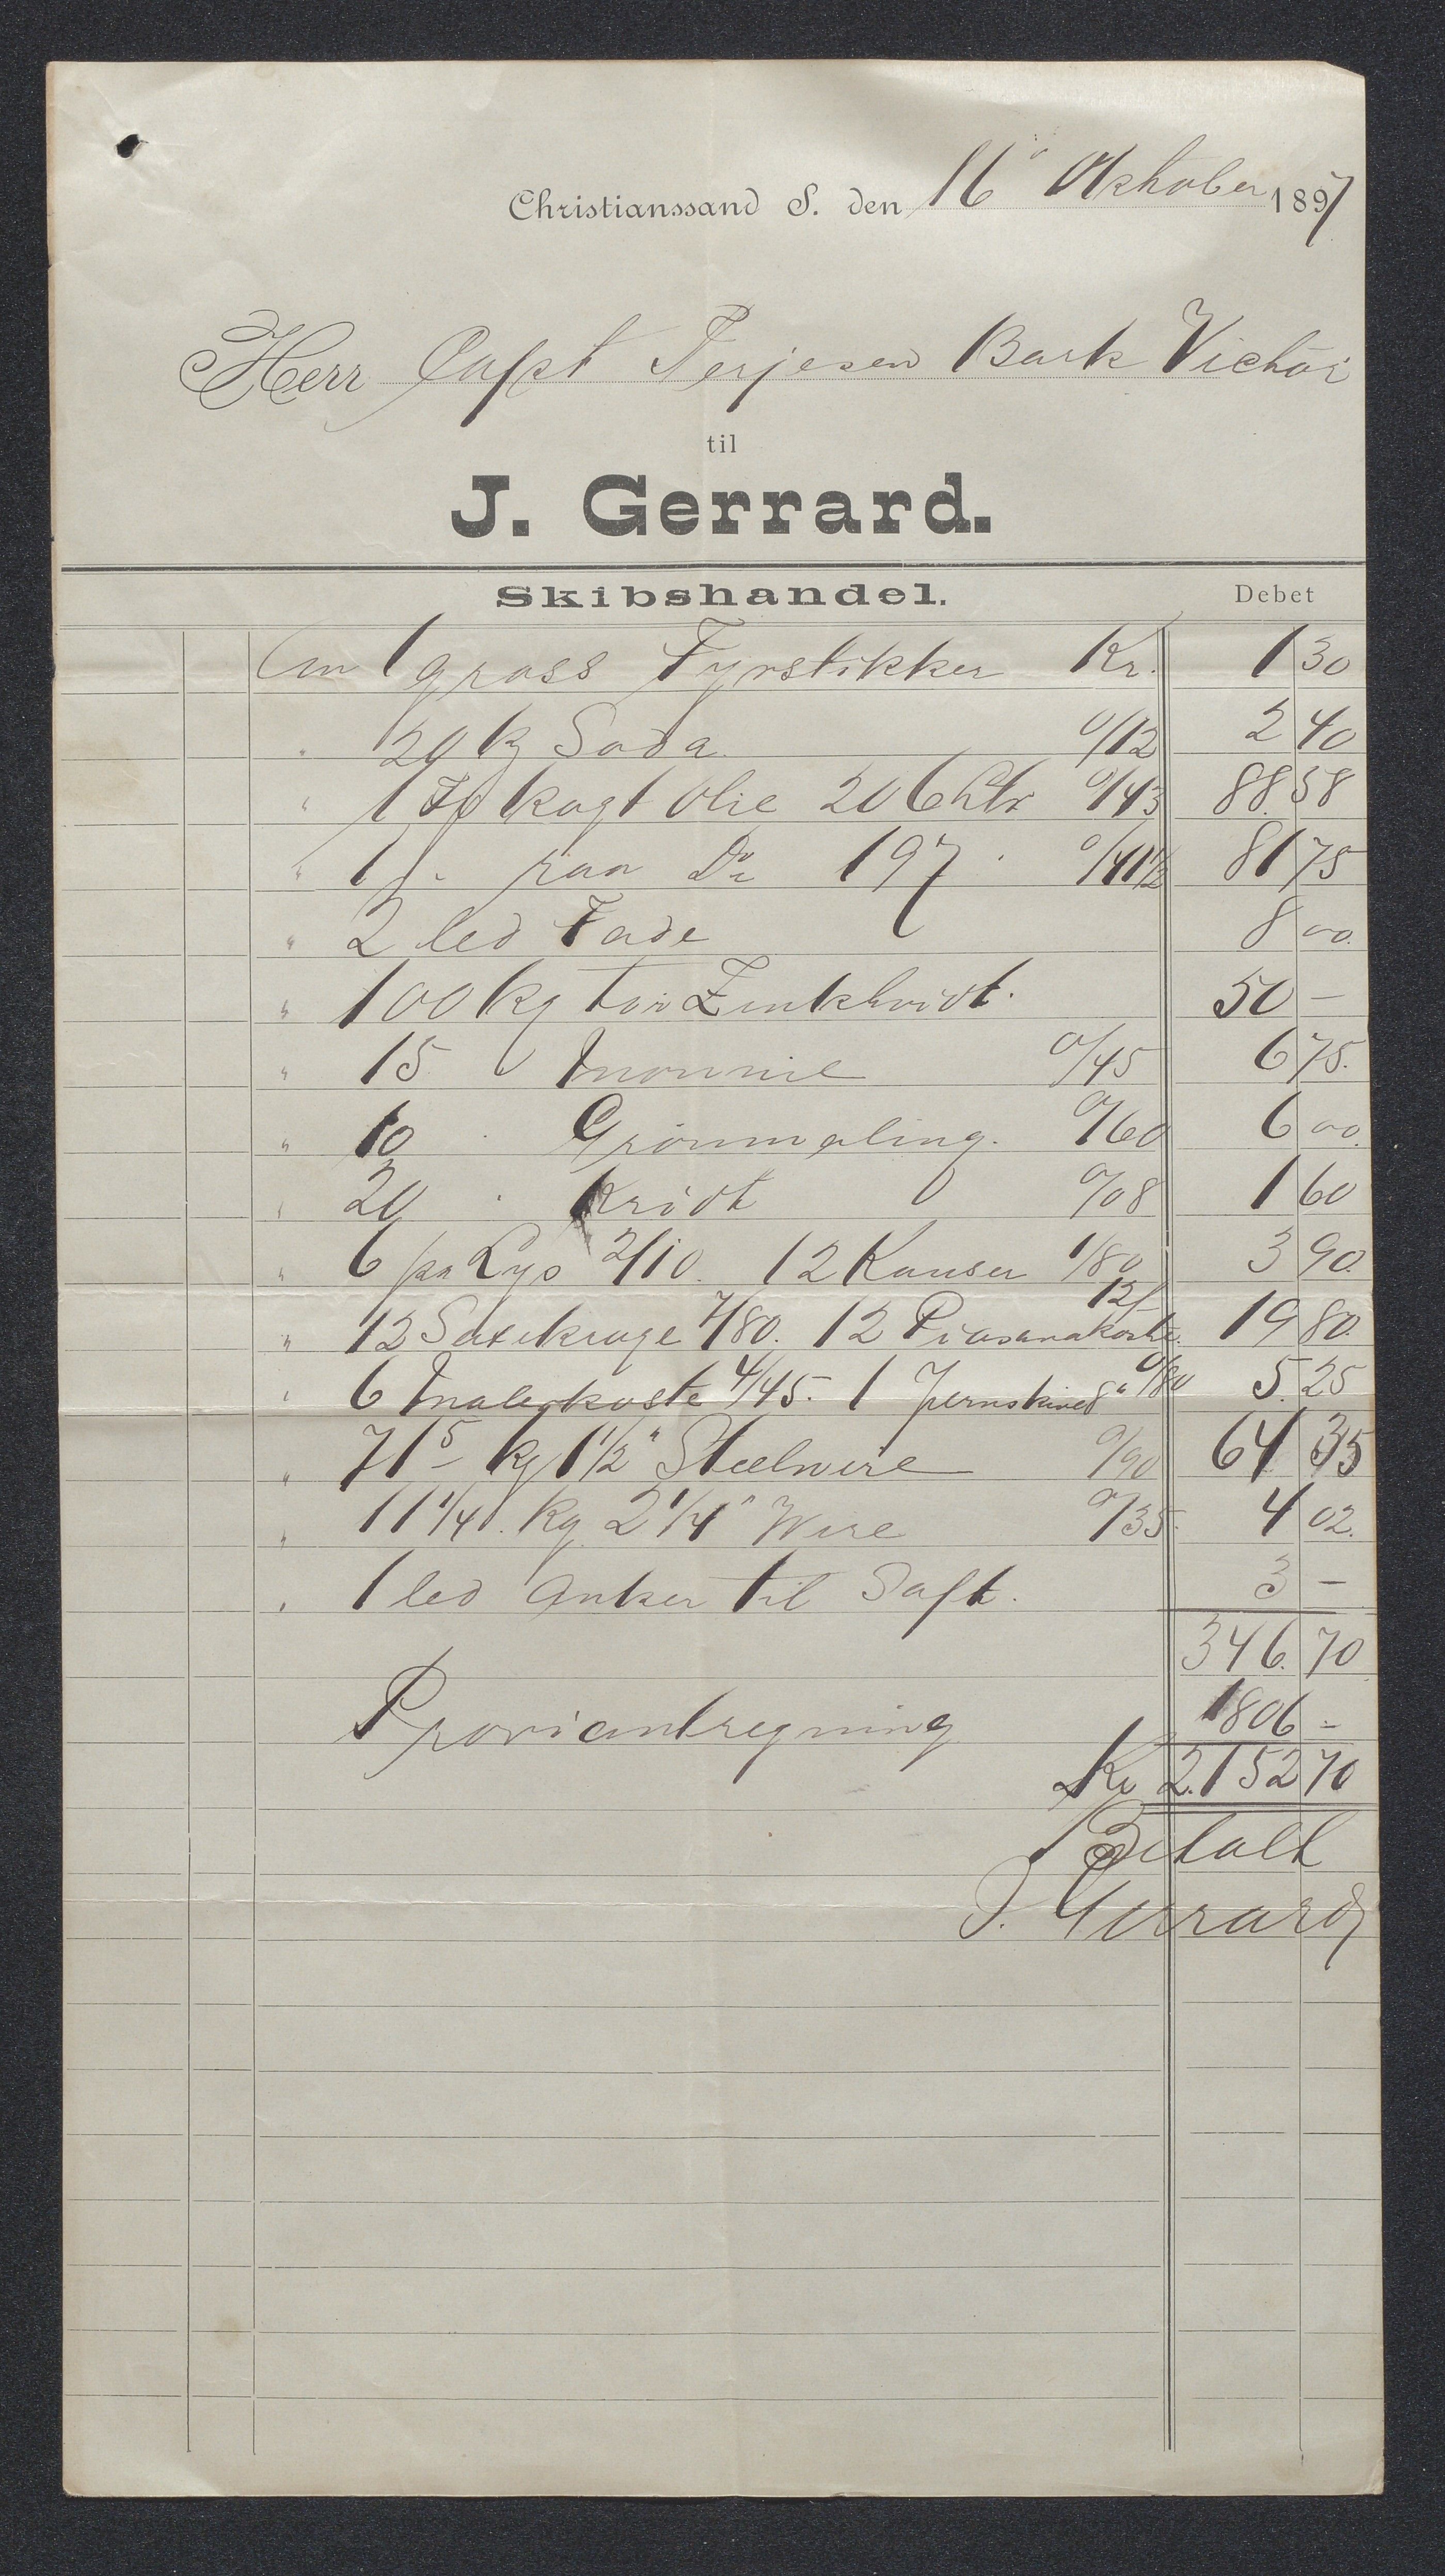 Christianssand S. den 16' Oktober 1897
Herr Capt Terjesen Bark Victor
til
J. Gerrard.
Skibshandel. Debet
An 1 gross Fyrstikker Kr. 1 30
" 20 kg Soda 0/12 2 40
" 1 Fd kogt Olie 206 Ltr 0/43 88.58
" 1 f. raa Do 197 " 0/41 1/2 81 75
" 2 led Fade 8 00.
" 100 kg tør Zinkhvidt. 50 —
" 15 " Mönnie 0/45 6 75.
" 10 " Grönmaling. 0/60 6 00.
" 20 " Kridt 0/08 1 60
" 6 pa Lys 2/10. 12 Kauser 1/80 3 90.
" 12 Sæxekroge 7/80. 12 Piasavakoste 12/- 19 80.
" 6 Malerkoste 4/45. 1 Jernskive 8" 0/80 5.25
" 71 5 kg 1 1/2" Steelwire 0/90 64 35
" 11 1/4 . kg 2 1/4" Wire 0/35. 4 02.
" 1 led Anker til Saft. 3 —
346.70
Proviantregning 1806 =
Kr 2.152 70
Betalt
J. Gerrard